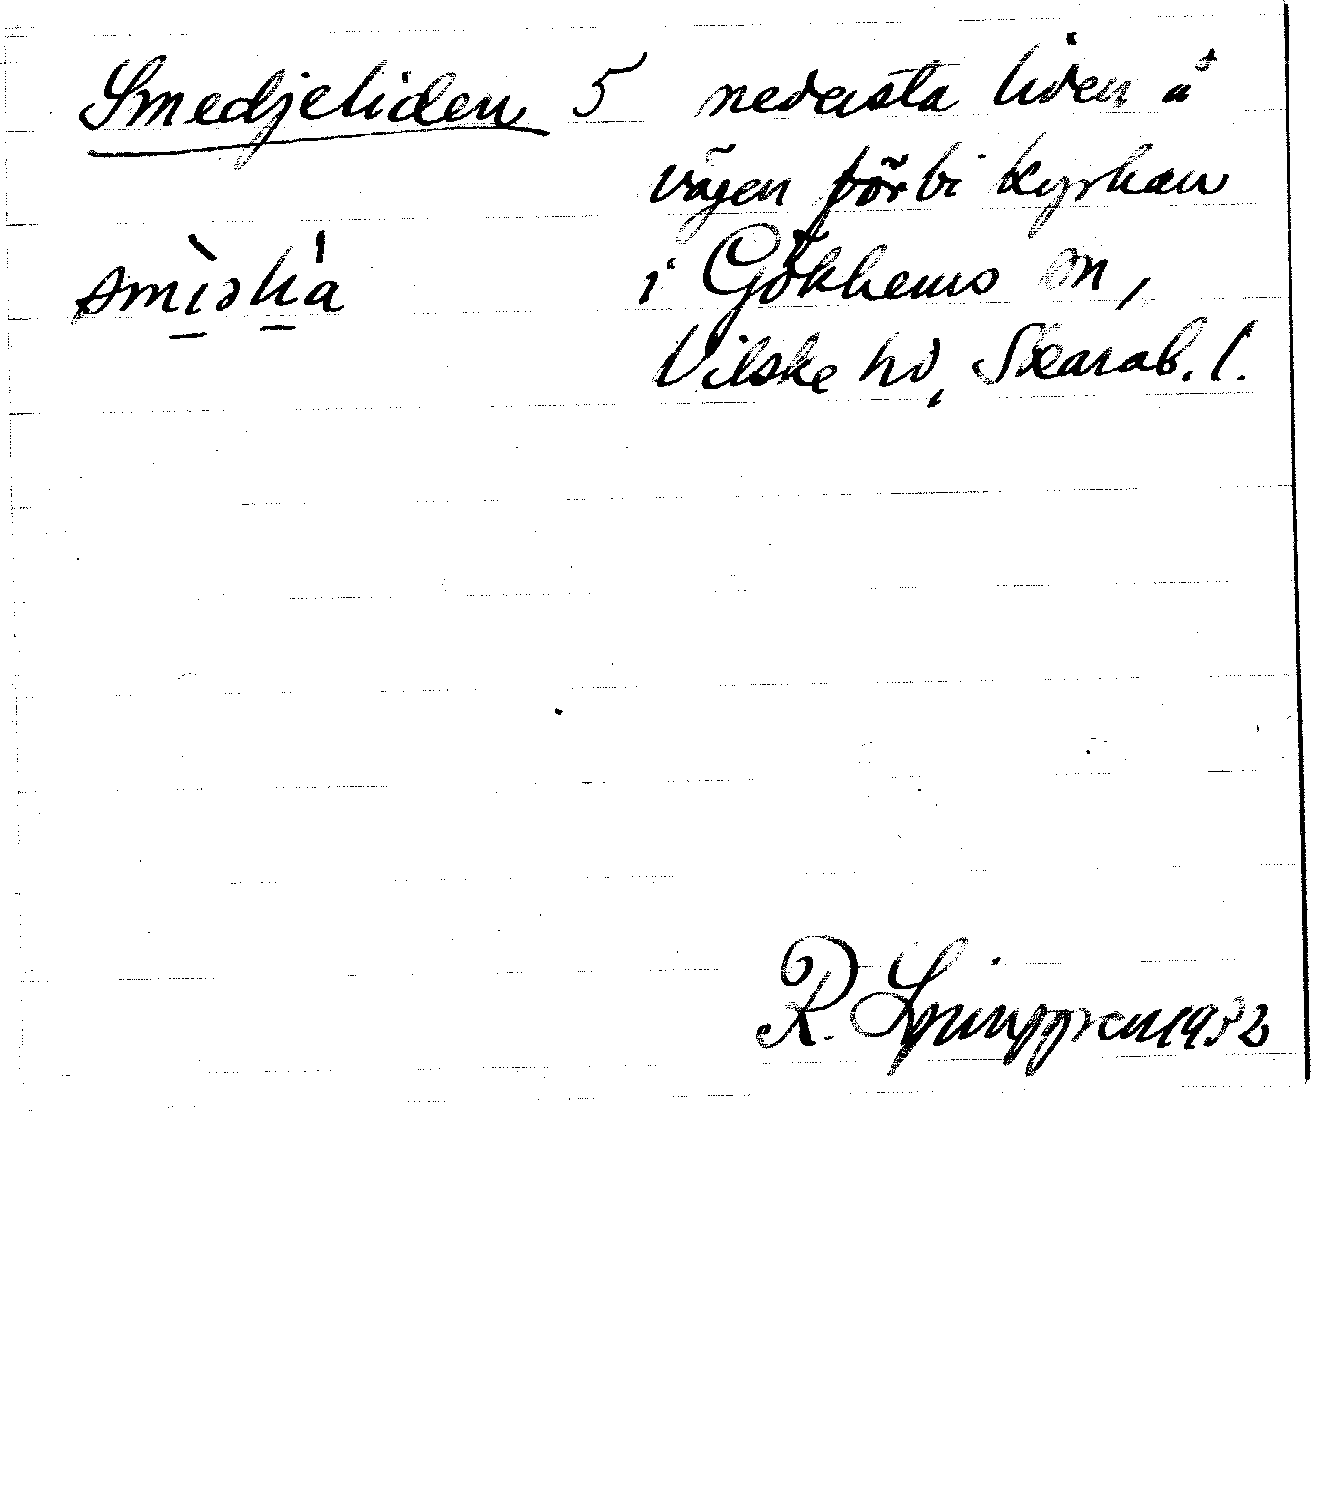 Smedjeliden 5 nedersta liden å
vägen förbi kyrkan
i Gökhems sn,
Vilske hd, Skarab. l.
R. Ljunggren 1932